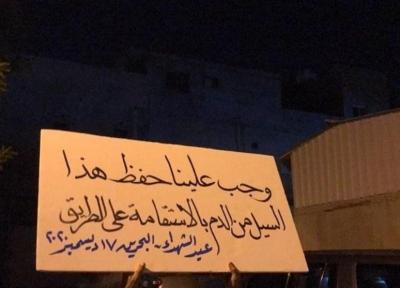 وجب علينا حفظ هذا
السيل من الدم بالاستقامة على الطريق
عيد الشهداء - البحرين ١٧ ديسمبر ٢٠٢٠